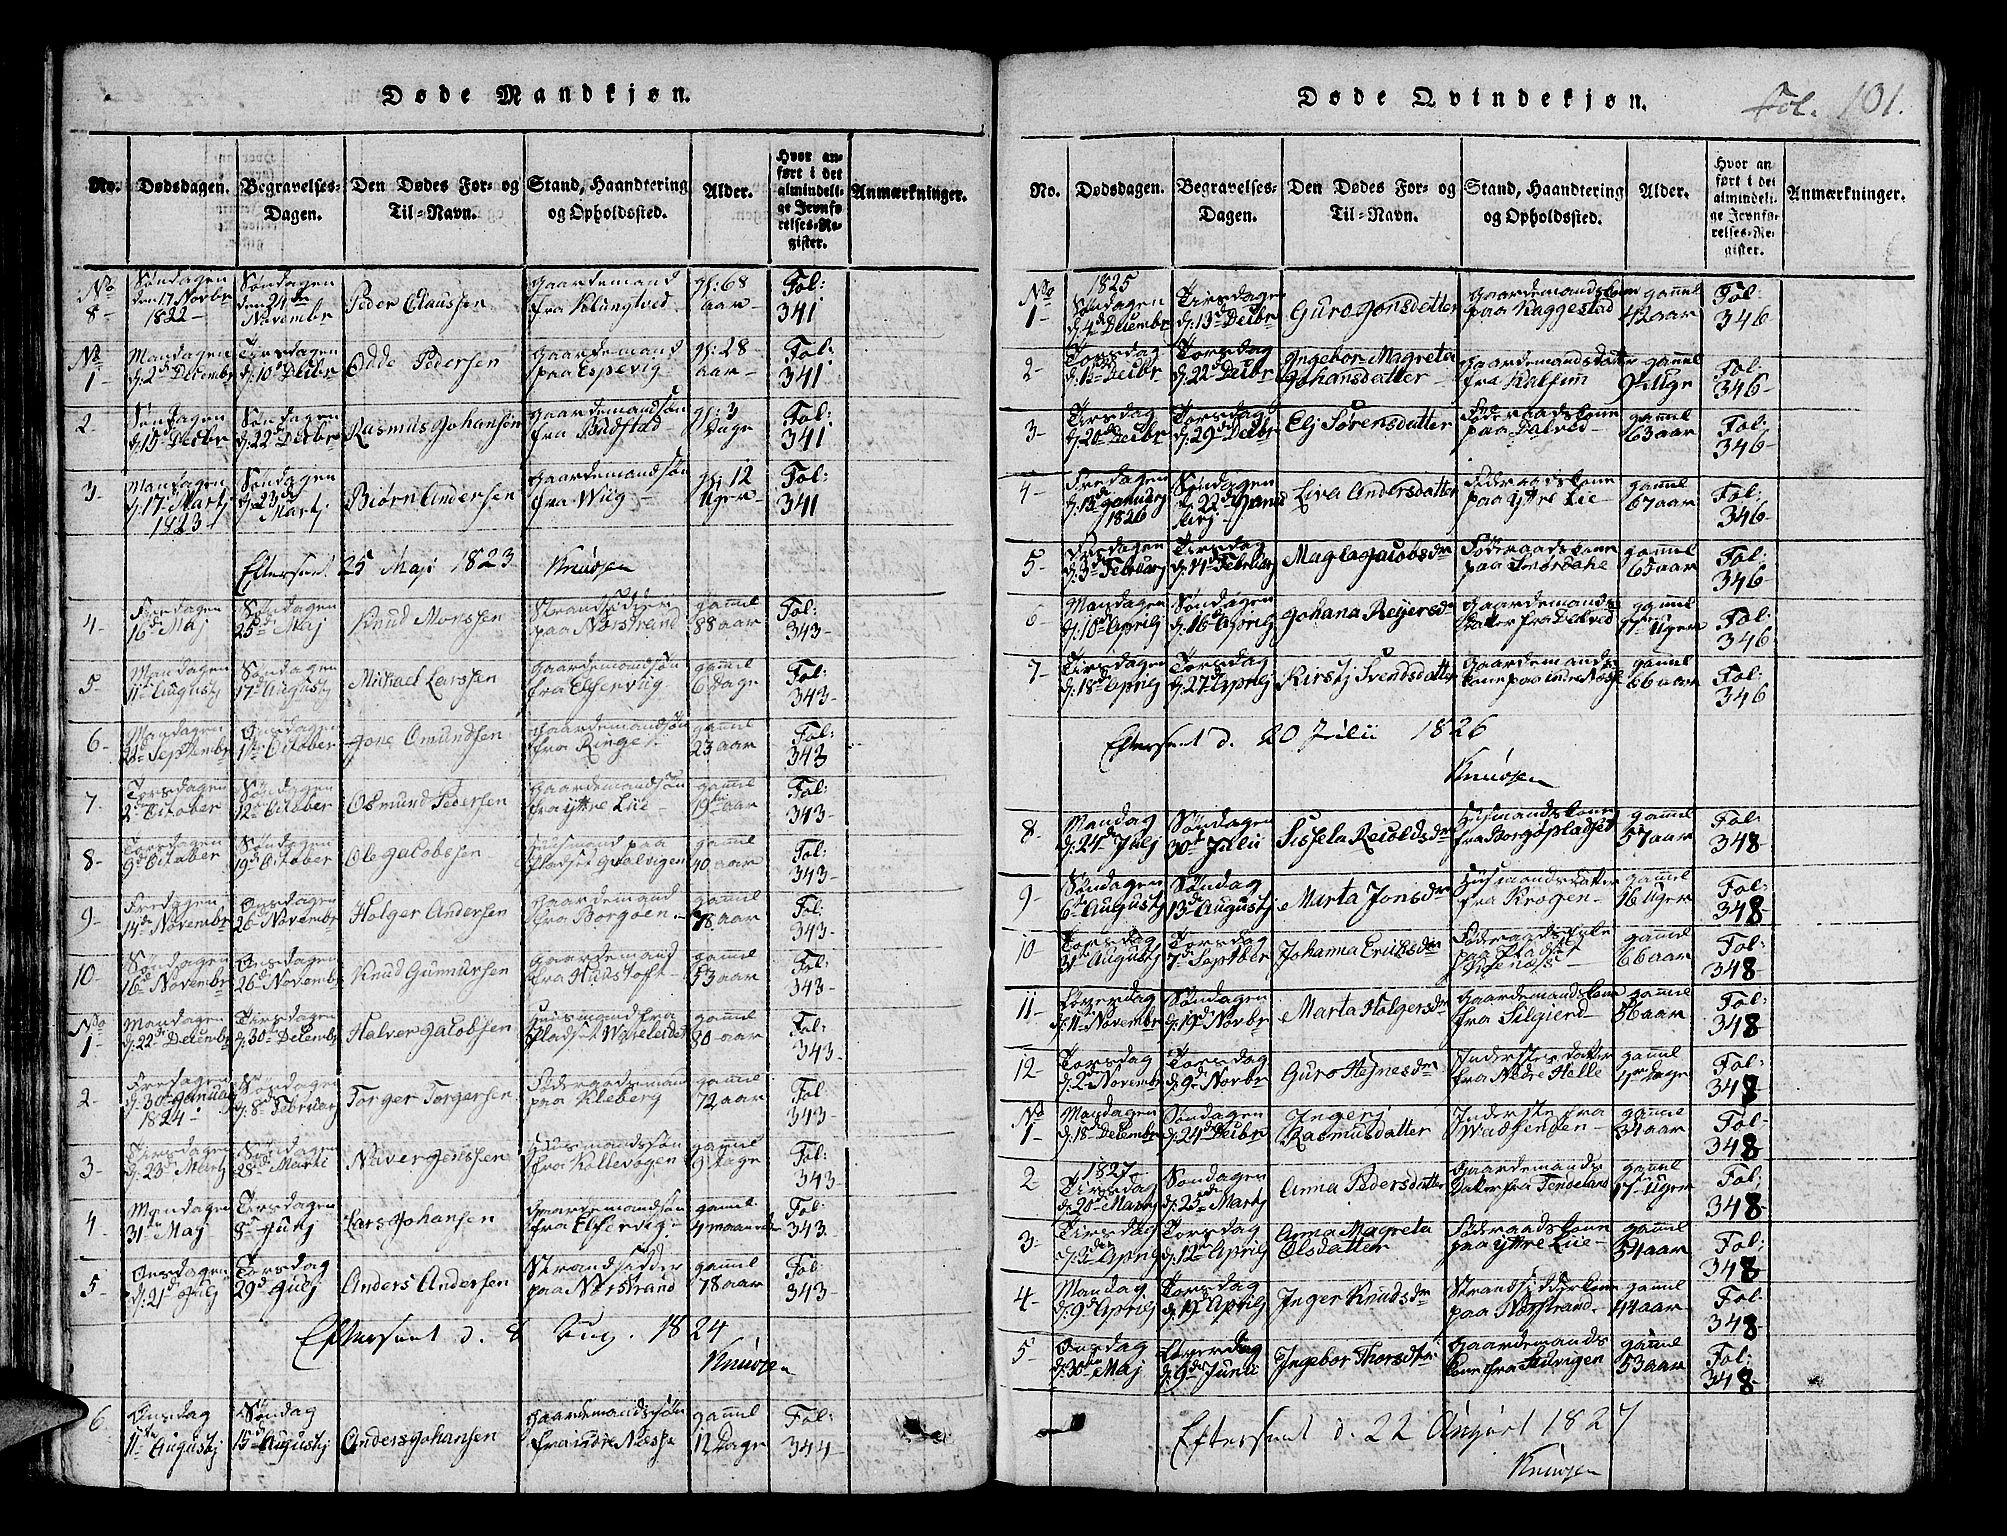 Døde Mandkjøn.
No. Dødsdagen. Begravelses-Dagen. Den Dødes For- og Til-Navn. Stand, Haandtering og Opholdssted. Alder. Hvor anført i det almindelige Jevnførelses-Register. Anmærkninger.
No 8- Søndagen den 17 Novbr 1822- Søndagen den 24de November Peder Claussen Gaardemand fra gl: 68 aar- Fol: 341
No 1- Mandagen d: 2de Decembr Tirsdagen d: 10de Decbr Odde Pedersen Gaardemand paa Espevig- gl: 28- aar- Fol: 341
2- Søndagen d: 15de Decbr Søndagen d: 22de Decbr Rasmus Johansøn Gaardemandsøn fra gl: 3 Dage Fol: 341
3- Mandagen d: 17de Martj 1823 Søndagen d: 23de Martj Biørn Andersen Gaardemandsøn fra Wiig- gl: 12 Uger- Fol: 341
Efterseet 25 Maji 1823 Knudsen
4- Fredagen 16de Maj Søndagen 25de Maj Knud Monssen Strandsidder paa Norstrand gammel 88 aar Fol: 343-
5- Mandagen 11te Augustj Søndagen 17de Augustj Michael Larssen Gaardemandsøn fra gammel 6 Dage Fol: 343-
6- Mandagen Septembr Onsdagen 1ste October Jone Omundsen Gaardemandsøn fra gammel 23 aar Fol: 343
7- Torsdagen 2de October Søndagen 12te October Osmund Pedersen Gaardemandsøn fra Yttre Lie- gammel 19 aar Fol: 343-
8- Torsdagen 9de October Søndagen 19de October Ole Jacobssen Huusmand paa Pladset Hvalvigen gammel 40 aar Fol: 343-
9- Fredagen 14de Novembr Onsdagen 26de Novembr Holger Andersen Gaardemand fra Borgøen- gammel 78 aar Fol: 343-
10- Søndagen 16de Novembr Onsdagen 26de Novembr Knud Gunnursen Gaardemand fra Hustoft- gammel 53 aar Fol: 343-
No 1- Mandagen d: 22de Decembr Tirsdagen d: 30de Decembr Halver Jacobsen Huusmand fra Pladset gammel 80 aar Fol: 343-
2- Fredagen d: 30te Januarj 1824- Søndagen d: 8de Februarj Torger Torgersen Føderaadsmand paa Kleberg gammel 72 aar Fol: 343-
3- Tirsdagen d: 23de Martj Søndagen 28de Martj Naver Jenssen Huusmandssøn fra Kollevogen gammel 9 Dage Fol: 343
4- Mandagen 31te Maj Tirsdagen 8de Junj Lars Johansen Gaardemandsøn fra gammel 4 maaneder Fol: 343-
5- Onsdagen d: 21de Julj Torsdag 29de Julj Anders Andersen Strandsidder paa Norstrand gammel 78 aar Fol: 343-
Eftersent d. 8 Aug. 1824
Knudsen
6- Onsdag 11te Augustj Søndag 15de Augustj Anders Johansen Gaardemandssøn fra indre Næsse gammel 12 Dage Fol: 344-
Døde Qvindekjøn. Fol. 101.
No. Dødsdagen. Begravelses-Dagen. Den Dødes For- og Til-Navn. Stand, Haandtering og Opholdssted. Alder. Hvor anført i det almindelige Jevnførelses-Register. Anmærkninger.
No 1- 1825 Søndagen d: 4de Decembr Tirsdagen d: 13de Decbr Guro Jonsdatter Gaardemandskone paa Kaggestad gammel 42 aar Fol: 346-
2- Torsdag d: 15de Decbr Torsdag d: 22de Decbr Ingebor Magreta Johansdatter- Gaardemandsdatter fra gammel 9 Uge Fol: 346-
3- Tirsdag d: 20de Decbr Torsdag d: 29de Decbr Elj Sørensdatter Føderaadskone paa Dalved- gammel 63 aar Fol: 346-
4- Fredagen d: 13de Januarj 1826 Søndagen d: 22de Januarj Liva Andersdatter Føderaadskone paa Yttre Lie- gammel 67 aar Fol: 346-
5- d: 3de Februarj Tirsdag d: 14de Februarj Magla Jacobsdr Føderaadskone paa gammel 65 aar Fol: 346-
6- Mandagen d: 10de Aprilj Søndagen d: 16de Aprilj Johana Reyersdr Gaardemandsdatter fra Dalved gammel 17 Uger Fol: 346
7- Tirsdagen d: 18de Aprilj Torsdag d: 27de Aprilj Kirstj Svendsdatter Gaardemandskone paa indre Næsse gammel 66 aar Fol: 346
Eftersent d. 20 Julii 1826
Knudsen
8- Mandag d: 24de Julj Søndagen 30te Julii Sissela Reioldsdr Huusmandskone fra Borgøpladset gammel 57 aar Fol: 348-
9- Søndagen 6te Augustj Søndag 13de Augustj Marta Jonsdr Huusmandsdatter fra Krogen- gammel 16 Uger Fol: 348-
10- Torsdag 31te Augustj Torsdag 7de Septber Johanna Ericksdr paa Pladset gammel 66 aar Fol: 348-
11- Løverdag d: 11te Novembr Søndagen d: 19de Novbr Marta Holgersdr Gaardemandskone fra gammel 56 aar Fol: 348-
12- Torsdag d: 2de Novembr Torsdag d: 9de Novbr Guro Heynesdr Inderstes datter fra Nedre Helle gammel Dage Fol: 348
No 1- Mandagen d: 18de Decembr Søndagen d: 24de Decbr Ingerj Rasmusdatter Inderste fra gammel 34 aar Fol: 348-
2- 1827- Tirsdag d: 20de Martj Søndagen d: 25de Martj Anna Pedersdatter Gaardemandsdatter fra Tendeland gammel 17 Uger Fol: 348-
3- Tirsdag d: Aprilj Torsdag d: 12te Aprilj Anna Magreta Olsdatter Føderaadskone paa Yttre Lie- gammel 54 aar Fol: 348-
4- Mandag d: 9de Aprilj Torsdag d: 19de Aprilj Inger Knudsdr Strandsidderkone paa Norstrand- gammel 44 aar Fol: 348-
5- Onsdag d: 30te Maj Løverdag d: 9de Junii Ingebor Thorsdtr Gaardemandskone fra gammel 53 aar Fol: 348-
Eftersent d. 22 August 1827
Knudsen